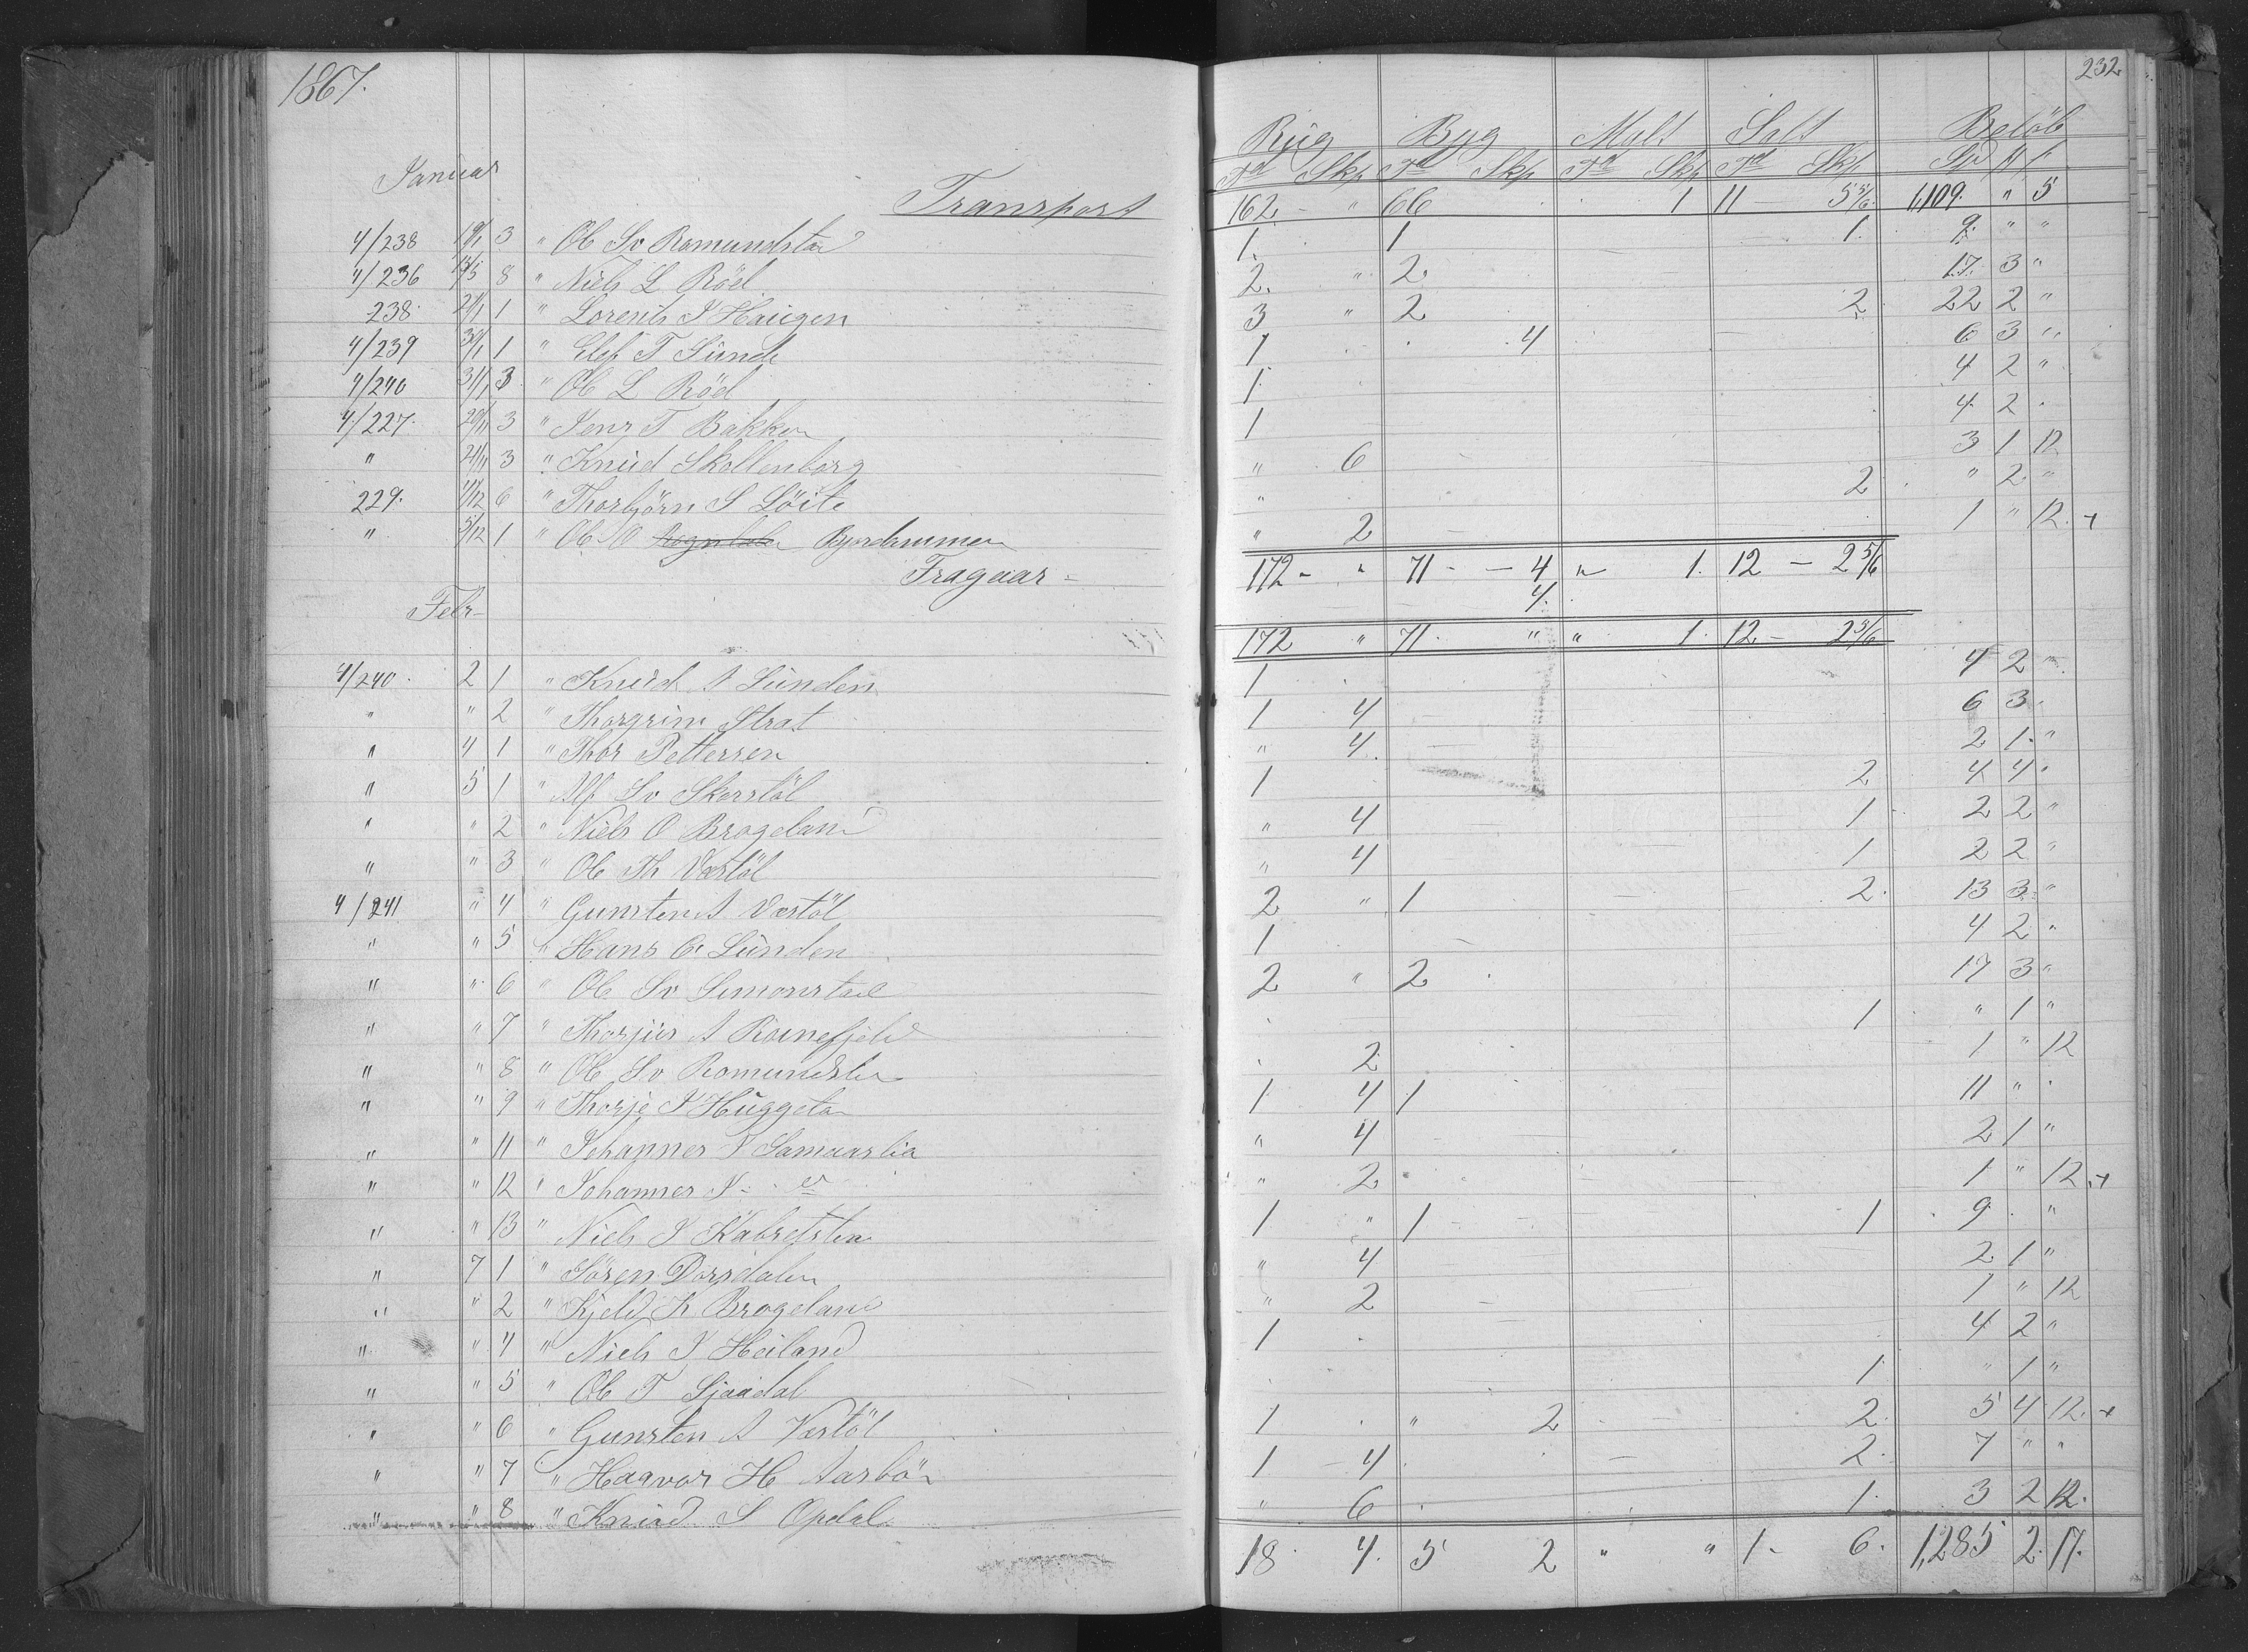 1867.
232
Rug Byg Malt Salt Beløb
Januar
Td Skp Td Skp Td Skp Td Skp Spd
Transport 162 " 66 1 11 - 5 5/6 1,109. " 5
4/238 19/1 3 " Ole Sv Romundstad 1. 1 1. 9. " "
4/236 8 " Niels L Röed 2. " 2. 17. 3 "
238. 21/1 1 " Lorents J Haugen 3 " 2 2 22 2 "
4/239 30/1 1 " Elef T Sunde 1 4 6 3 "
4/240 31/1 3 " Ole L Röed 1. 4 2 "
4/227. 20/11 3 " Jens T Bakken 1 4 2
" 21/11 3 " Knud Skollenborg " 6 3 1 12
229. 1/12 6 " Thorbjörn S Löite " 2 " 2 "
" 5/12 1 " Ole O " 2 1 " 12. +
Fragaar - 172 - " 71 - - 4 " 1. 12 - 2 5/6
4.
Febr-
172 " 71. " " 1. 12 - 2 5/6
4/240 2 1 " Knud A Sunden 1 4 2 "
" " 2 " Thorgrim Strat 1 4 6 3
" 4 1 " Thor Pettersen " 4. 2 1. "
" 5 1 " Alf Sv Skorstöl 1 2 4 4
" " 2 " Niels O Brogeland " 4 1 2 2 "
" " 3 " Ole Th Værstöl " 4 1 2 2 "
4/241 " 4 " Gunsten A Værstöl 2 " 1 2. 13 3 "
" " 5 " Hans O. Sunden 1 4 2 "
" " 6 " Ole Sv Simonstad 2 " 2 17 3 "
" " 7 " Thorjus A 1 " 1 "
" " 8 " Ole Sv Romundstad 2 1 " 12
" " 9 " Thorje J Huggeta 1 4 1 11 "
" " 11 " Johannes J Samaaslia " 4 2 1 "
" " 12 " Johannes J " 2 1 " 12. +
" " 13 " Niels J 1 " 1 1 9 "
" 7 1 " Sören Dorsdalen " 4 2 1 "
" " 2 " Kjeld K Brogeland " 2 1 " 12
" " 4 " Niels J Heiland 1 4 2 "
" " 5 " Ole T 1 " 1 "
" " 6 " Gunsten A Værstöl 1 " 2 2. 5 4 12. +
" " 7 " Haavor H Aasbö 1 4 2. 7 " "
" " 8 " Knud S Opdal " 6 1. 3 2 12.
18 4. 5 2 " " 1 - 6. 1,285 2. 17.